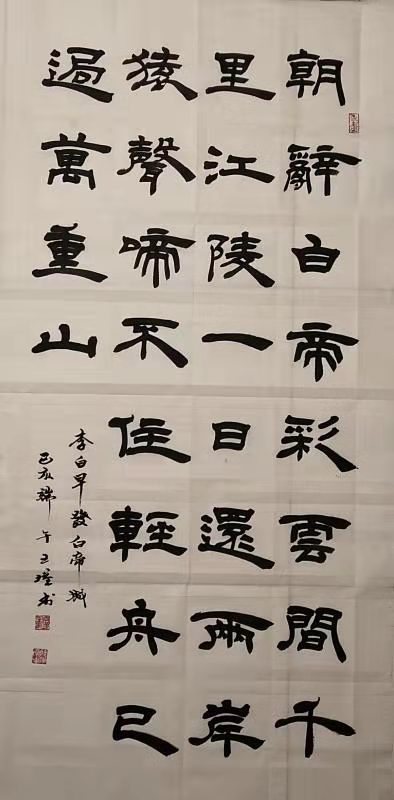 朝辭白帝彩雲間千
里江陵一日還兩岸
猿聲啼不住輕舟已
過萬重山
李白早發白帝城
己亥端午王瑾书